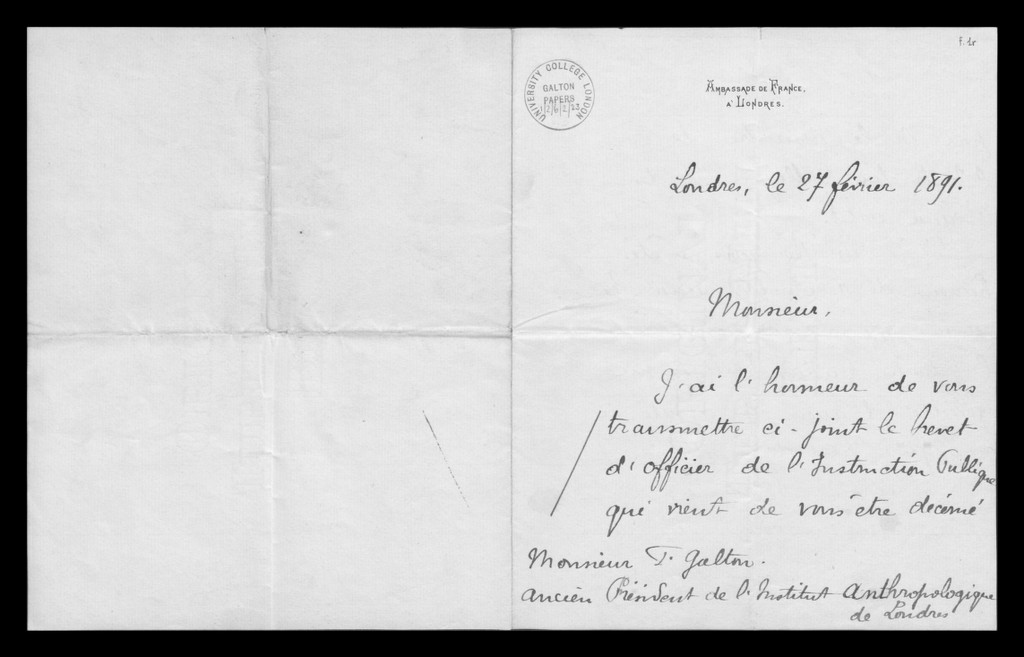 f. 1r
UNIVERSITY COLLEGE LONDON
GALTON
PAPERS
AMBASSADE DE FRANCE,
A' LONDRES.
Londres, le 27 février 1891.
Monsieur,
J'ai l'honneur de vous
transmettre ci-joint le brevet
d'officier de l'Instruction Publique
qui vient de vous être décerné
Monsieur F. Galton.
ancien Président de l'Institut Anthropologique
de Londres